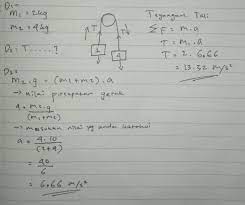 D1 =
m1 = 2 kg
m2 = 4 kg
D2 = T.....?
D3 =
m2 . g = (m1 + m2) . a
→ Nilai percepatan gerak
a = m2 . g
(m1 + m2)
→ masukan nilai yg anda ketahui
a = 4 . 10
(2 + 4)
= 40
6
= 6,66 m/s²
T
T
1
2
Tegangan Tali
ΣF = m . a
T = m1 . a
T = 2 . 6,66
= 13.32 m/s²